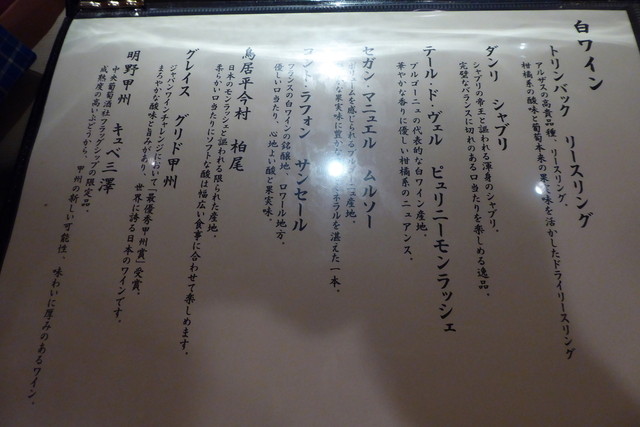 白ワイン
トリンバック リースリング
アルザスの高貴品種、リースリング。
柑橘系の酸味と葡萄本来の果実味を活かしたドライリースリング
ダンリ シャブリ
シャブリの帝王と謳われる渾身のシャブリ。
完璧なバランスに切れのある口当たりを楽しめる逸品。
テール・ド・ヴェル ピュリニーモンラッシェ
ブルゴーニュの代表的な白ワイン産地。
華やかな香りに優しい柑橘系のニュアンス。
セガン・マニュエル ムルソー
を感じられるブルゴーニュ産地。
な果実味に豊かなミネラルを湛えた一本。
コント・ラフォン サンセール
フランスの白ワインの銘醸地、ロワール地方。
優しい口当たり、心地よい酸と果実味。
鳥居平今村 柏尾
日本のモンラッシェと謳われる限られた産地。
柔らかい口当たりにソフトな酸は幅広い食事に合わせて楽しめます。
グレイス グリド甲州
ジャパンワインチャレンジにおいて「最優秀甲州賞」受賞。
まろやかな酸味と旨みがあり、世界に誇る日本のワインです。
明野甲州 キュベ三澤
中央葡萄酒社フラッグシップの限定品。
成熟度の高いぶどうから、甲州の新しい可能性、味わいに厚みのあるワイン。